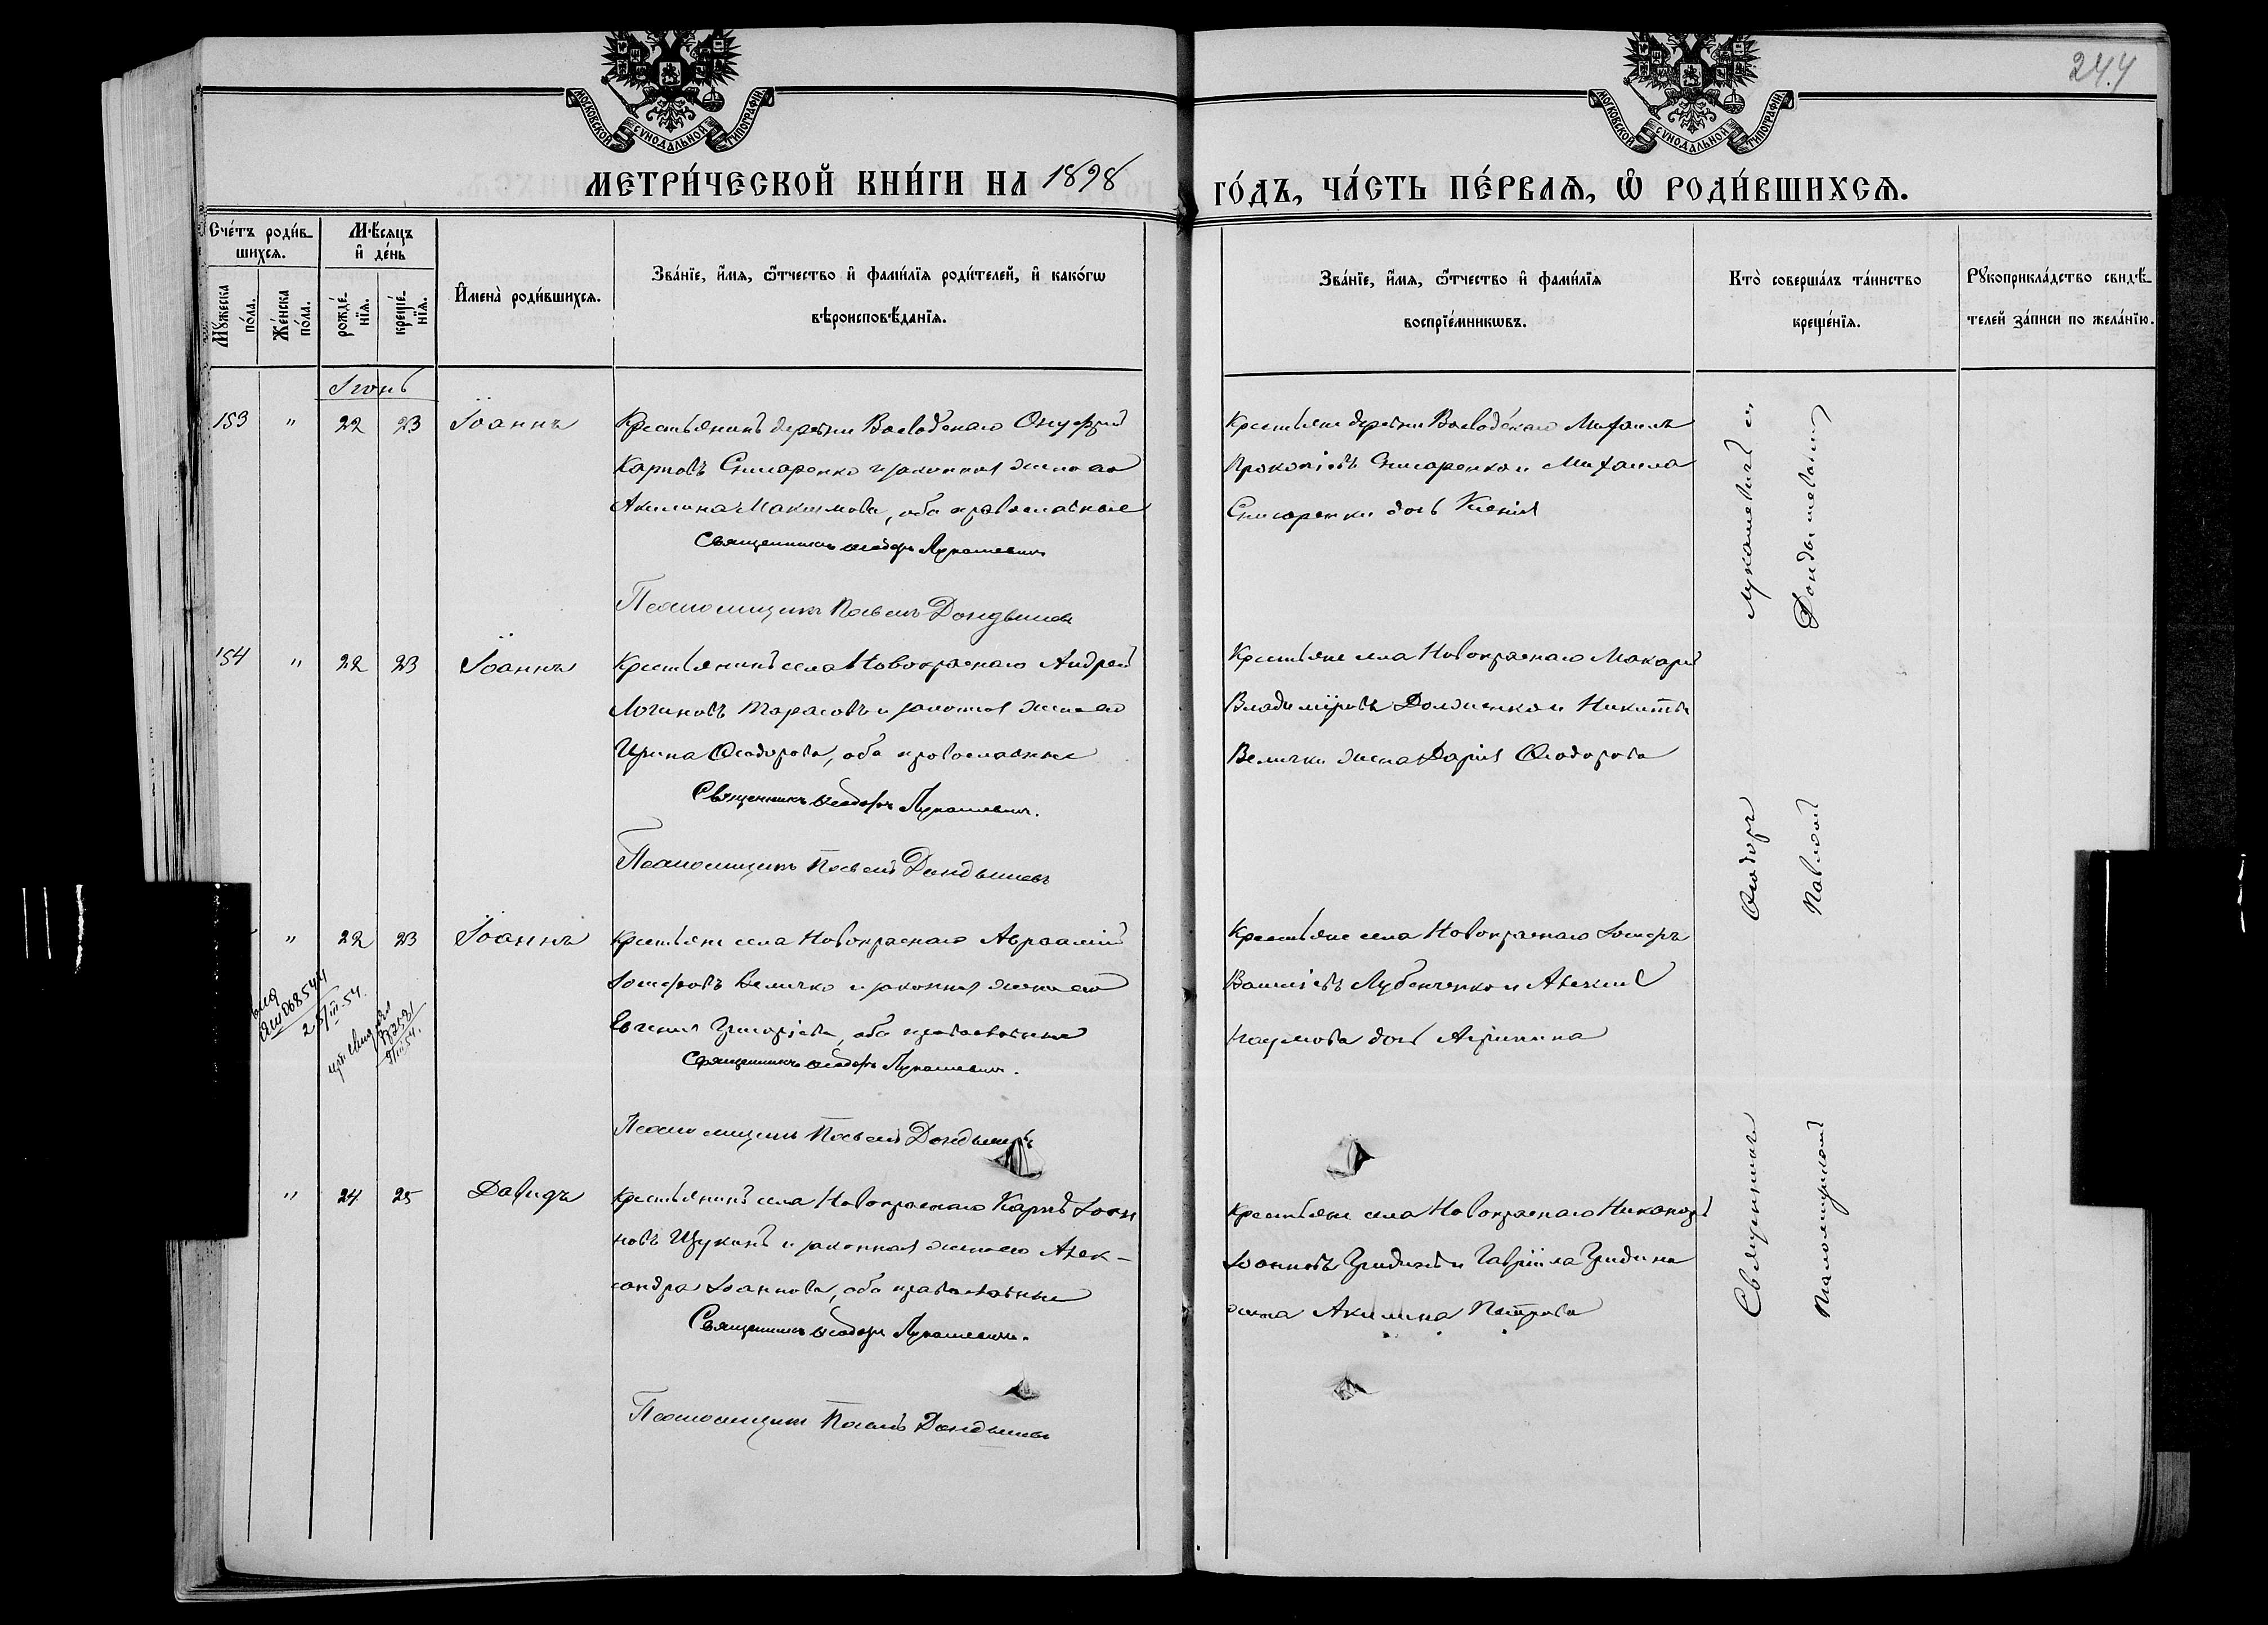 244
МОСКОВСКОЙ СѴНОДАЛЬНОЙ ТИПОГРАФІИ
МОСКОВСКОЙ СѴНОДАЛЬНОЙ ТИПОГРАФІИ
МЕТРИ́ЧЕСКОЙ КНИ́ГИ НА 1898
ГО́ДЪ, ЧА́СТЬ ПЕ́РВАѦ, Ѡ҆ РОДИ́ВШИХСѦ.
Сче́тъ роди́в-
шихсѧ.
Мꙋжеска
по́ла.
Же́нска
по́ла.
Мѣ́сѧцъ
и҆ де́нь
рожде́-
нїѧ.
креще́-
нїѧ.
И҆мена̀ роди́вшихсѧ.
Зва́нїе, и҆́мѧ, ѻ҆́тчество и҆ фами́лїѧ роди́телей, и҆ како́гѡ
вѣроисповѣ́данїѧ.
Зва́нїе, и҆́мѧ, ѻ҆́тчество и҆ фами́лїѧ
воспрїе́мникѡвъ.
Кто̀ соверша́лъ та́инство
креще́нїѧ.
Рꙋкоприкла́дство свидѣ́-
телей за́писи по жела́нїю.
Іюнь
153 " 22 23 Іоаннъ
Крестьянинъ деревни Воеводскаго Онуфрій
Карповъ Слюсаренко и законная жена его
Акилина Максимова, оба православные
Священникъ Ѳеодоръ Лукашевичъ
Псаломщикъ Павелъ Дондышевъ
Крестьяне деревни Воеводскаго Михаилъ
Прокопіевъ Слюсаренко и Михаила
Слюсаренки дочь Ксенія
154 " 22 23 Іоаннъ
Крестьянинъ села Новокраснаго Андрей
Логиновъ Тарасовъ и законная жена его
Ирина Ѳеодорова, оба православные
Священникъ Ѳеодоръ Лукашевичъ.
Псаломщикъ Павелъ Дондышевъ
Крестьяне села Новокраснаго Макарій
Владиміровъ Доложенко и Никиты
Велички жена Дарія Ѳеодорова
" 22 23 Іоаннъ
Крестьяне села Новокраснаго Авраамій
Іосифовъ Величко и законная жена его
Евгенія Григоріева, оба православные
Священникъ Ѳеодоръ Лукашевичъ.
Псаломщикъ Павелъ Дондышевъ
Крестьяне села Новокраснаго Іосифъ
Василіевъ Лубенченко и Алексія
Наумова дочь Агрипина
25/III-54.
" 24 25 Давидъ
Крестьянинъ села Новокраснаго Карпъ Іоан
новъ Щукинъ и законная жена его Алек-
сандра Іоаннова, оба православные
Священникъ Ѳеодоръ Лукашевичъ.
Псаломщикъ Павелъ Дондышевъ
Крестьяне села Новокраснаго Никаноръ
Іоанновъ Гридинъ и Гавріила Гридина
жена Акилина Петрова
Священникъ Ѳеодоръ Лукашевичъ съ
Псаломщикомъ Павломъ Дондышевымъ